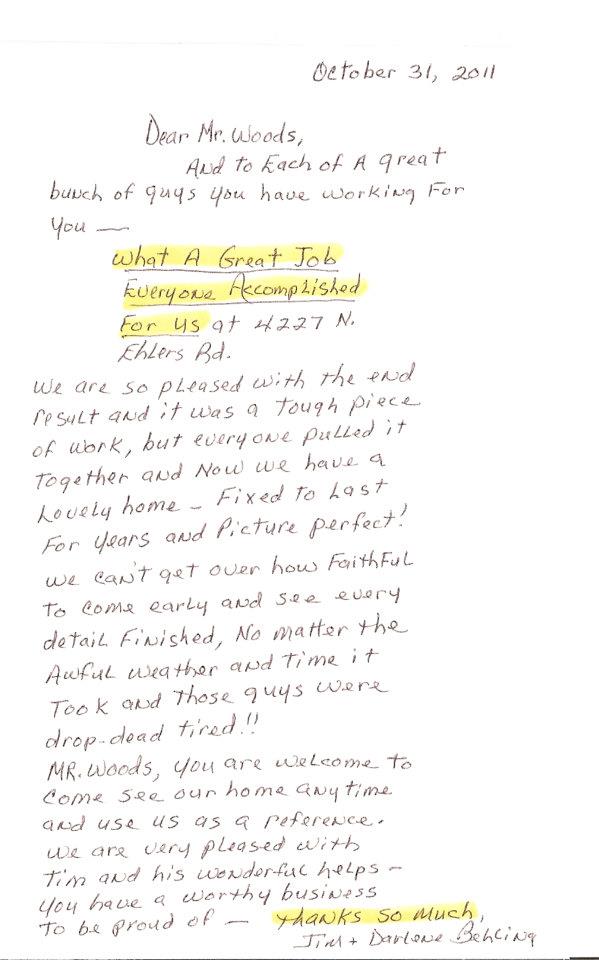 October 31, 2011
Dear Mr. Woods,
And to Each of A great
bunch of guys you have working For
you —
What A Great Job
Everyone Accomplished
For us at 4227 N.
Ehlers Rd.
We are so pleased with the end
result and it was a tough piece
of work, but everyone pulled it
together and Now we have a
Lovely home - Fixed to Last
For years and Picture perfect!
We can't get over how Faithful
to come early and see every
detail Finished, No matter the
Awful weather and time it
Took and those guys were
drop-dead tired!!
MR. Woods, you are welcome to
come see our home anytime
and use us as a reference.
We are very pleased with
Tim and his wonderful helps -
You have a worthy business
to be proud of — thanks so much,
Jim + Darlene Behling